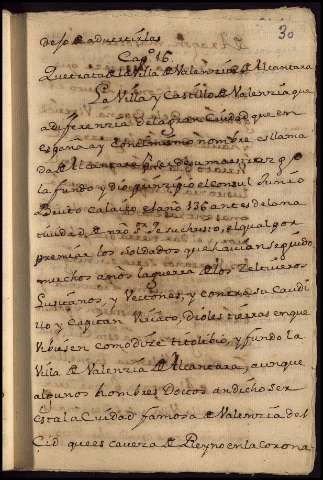 30
deso de aduertirlas
Capº 16
Que trata de la Villa de Valenzia de Alcantara
La Villa y Castillo de Valenzia que
a diferenzia de la gran Ciudad que en
españa ay con el mismo nombre es llama
da de Alcantara
la fundo y dio prinzipio el Consul Junio
Bruto Calaico el año 136 antes de la na
tiuidad de nro sr Jesuchristo, el qual por
premiar los soldados que hauian seguido
muchos años la guerra de los Zeltiueros
Lusitanos, y Vectones, y contra su Caudi
llo y Capitan Viriato, dioles tierras en que
Viuiesen como dize titolibio, y fundo la
Villa de Valenzia de Alcantara, aunque
algunos hombres Doctos an dicho ser
esta la Ciudad famosa de Valenzia del
Çid que es cauesa de Reyno en la corona